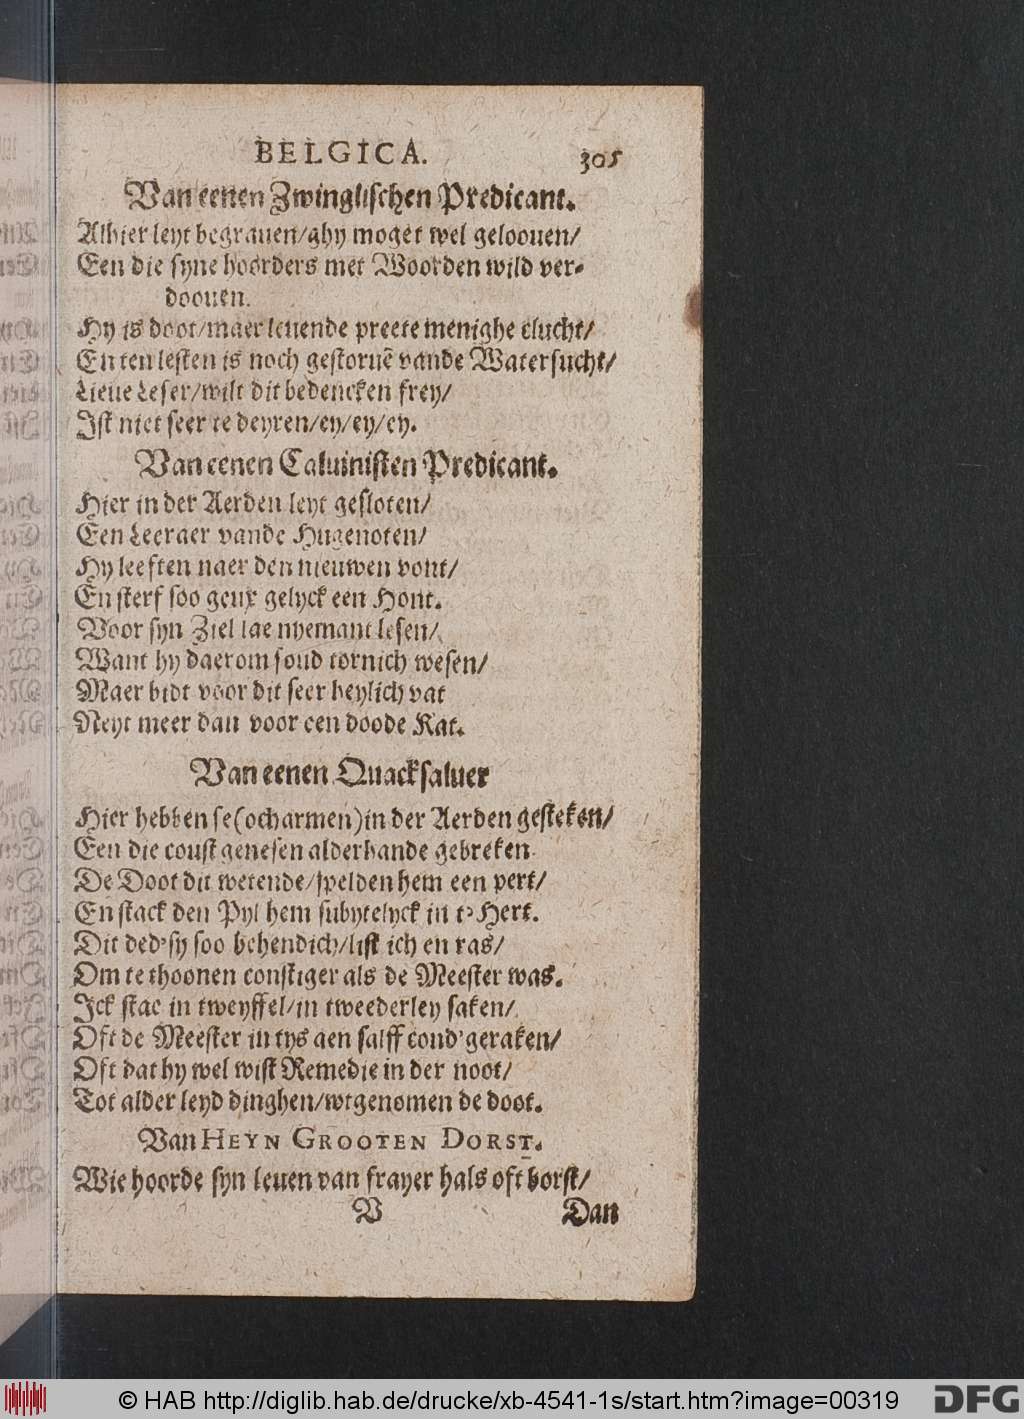 BELGICA. 305
Van eenen Zwinglischen Predicant.
Alhier leyt begrauen/ghy moget wel geloouen/
Een die syne hoorders met Woorden wild ver-
doouen.
Hy is doot/maer leuende preete menighe clucht/
En ten lesten is noch gestoruē vande Watersucht/
Lieue Leser/wilt dit bedencken frey/
Ist niet seer te deyren/ey/ey/ey.
Van eenen Caluinisten Predicant.
Hier in der Aerden leyt gesloten/
Een Leeraer vande Hugenoten/
Hy leeften naer den nieuwen vont/
En sterf soo geux gelyck een Hont.
Voor syn Ziel lae nyemant lesen/
Want hy daerom soud tornich wesen/
Maer bidt voor dit seer heylich vat
Neyt meer dan voor een doode Kat.
Van eenen Quacksaluer
Hier hebben se(ocharmen)in der Aerden gesteken/
Een die coust genesen alderhande gebreken
De Doot dit wetende/spelden hem een pert/
En stack den Pyl hem subytelyck in t'Hert.
Dit ded'sy soo behendich/list ich en ras/
Om te thoonen constiger als de Meester was.
Ick stac in tweyffel/in tweederley saken/
Oft de Meester in tys aen salff cond'geraken/
Oft dat hy wel wist Remedie in der noot/
Tot alder leyd dinghen/wtgenomen de doot.
Van HEYN GROOTEN DORST.
Wie hoorde syn leuen van frayer hals oft borst/
V Dan
© HAB http://diglib.hab.de/drucke/xb-4541-1s/start.htm?image=00319 DFG